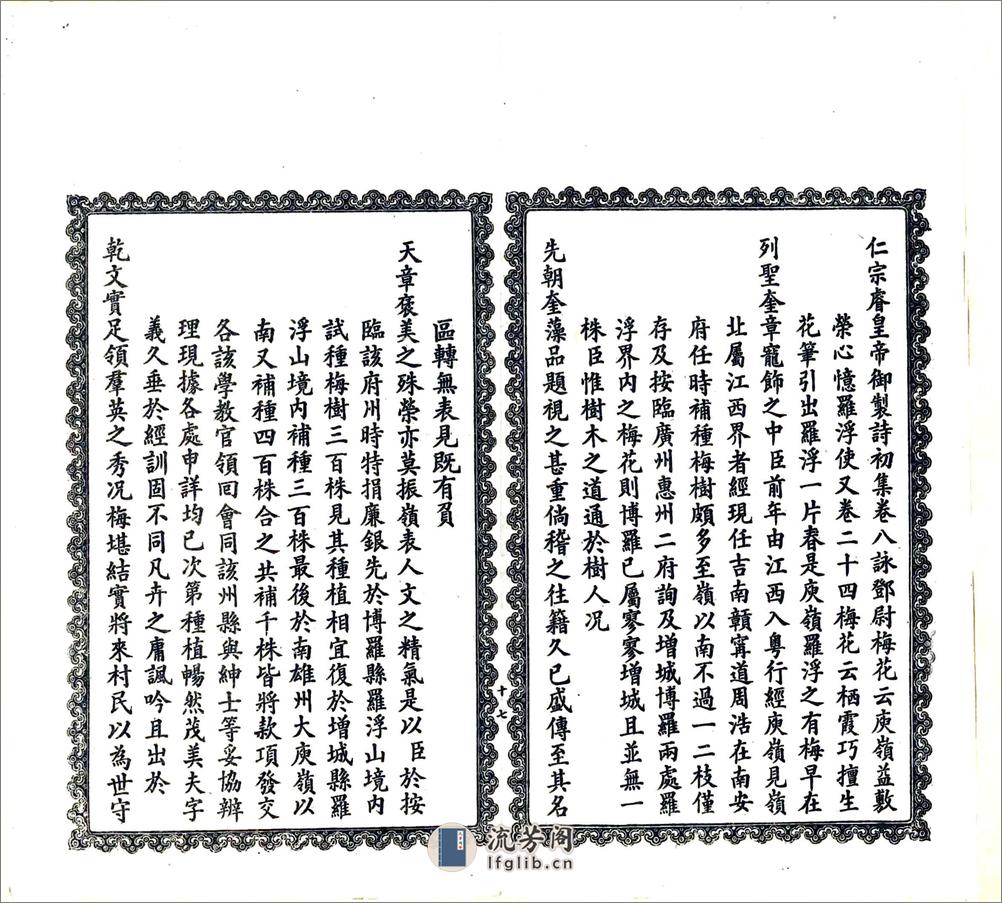 仁宗睿皇帝御製詩初集卷八詠鄧尉梅花云庾嶺益敷
榮心憶羅浮使又卷二十四梅花云栖霞巧擅生
花筆引出羅浮一片春是庾嶺羅浮之有梅早在
列聖奎章寵飾之中臣前年由江西入粵行經庾嶺見嶺
北屬江西界者經現任吉南贛寗道周浩在南安
府任時補種梅樹頗多至嶺以南不過一二枝僅
存及按臨廣州惠州二府詢及增城博羅兩處羅
浮界內之梅花則博羅已屬寥寥增城且並無一
株臣惟樹木之道通於樹人况
先朝奎藻品題視之甚重倘稽之往籍久已盛傳至其名
十七
區轉無表見既有負
天章褒美之殊榮亦莫振嶺表人文之精氣是以臣於按
臨該府州時特捐廉銀先於博羅縣羅浮山境內
試種梅樹三百株見其種植相宜復於增城縣羅
浮山境內補種三百株最後於南雄州大庾嶺以
南又補種四百株合之共補千株皆將款項發交
各該學教官領回會同該州縣與紳士等妥協辦
理現據各處申詳均已次第種植暢然茂美夫字
義久垂於經訓固不同凡卉之庸諷吟且出於
乾文實足領羣英之秀况梅堪結實將來村民以為世守
流芳阁
lfglib.cn